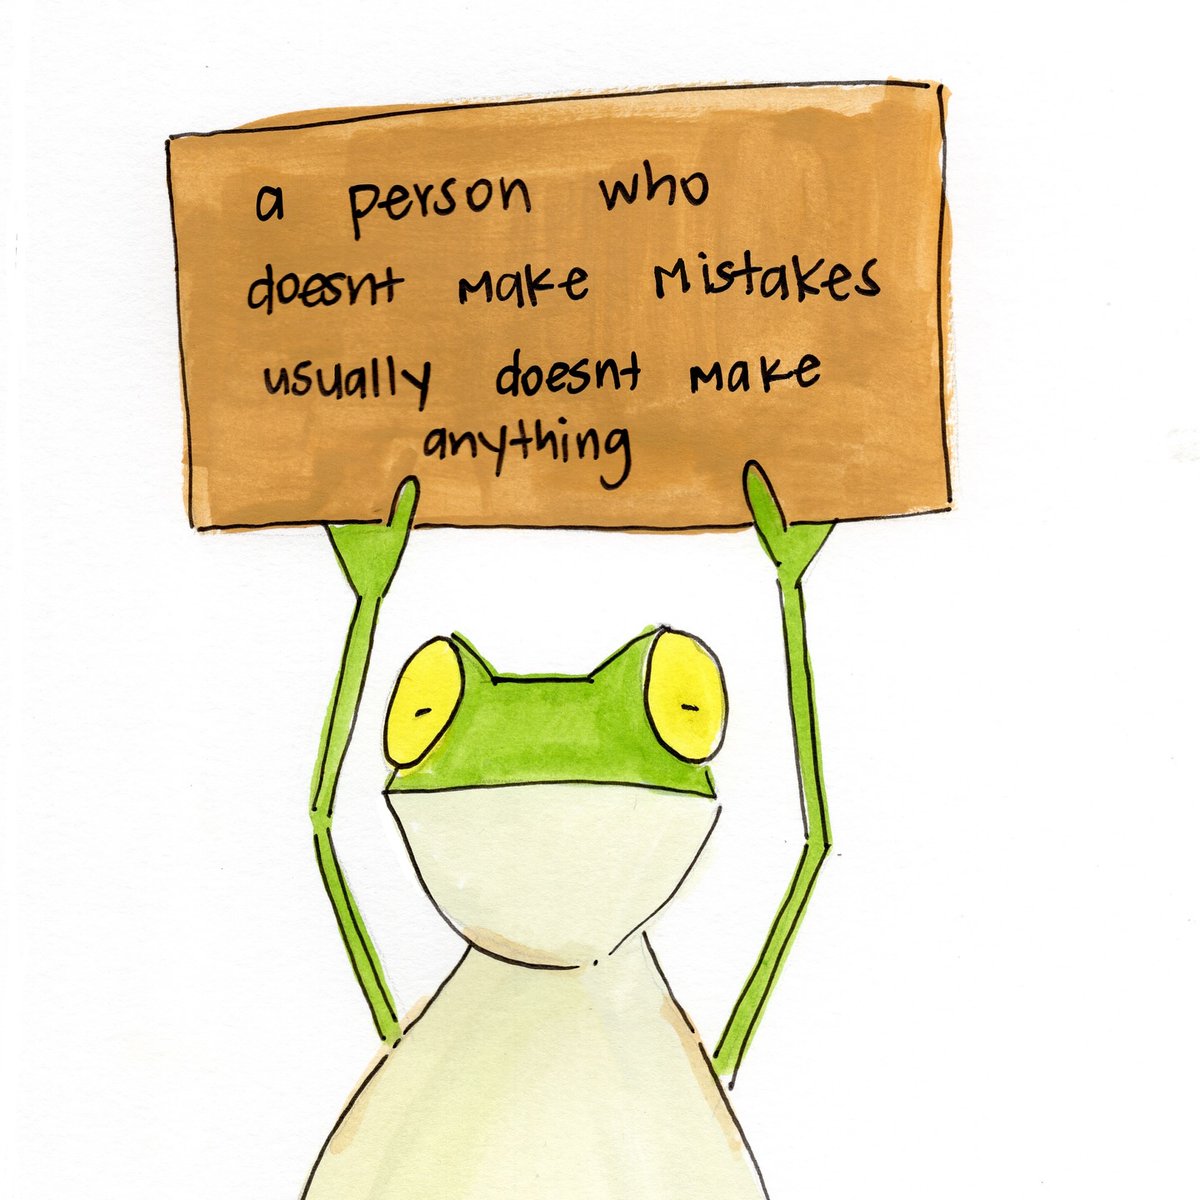 a person who
doesnt make mistakes
usually doesnt make
anything